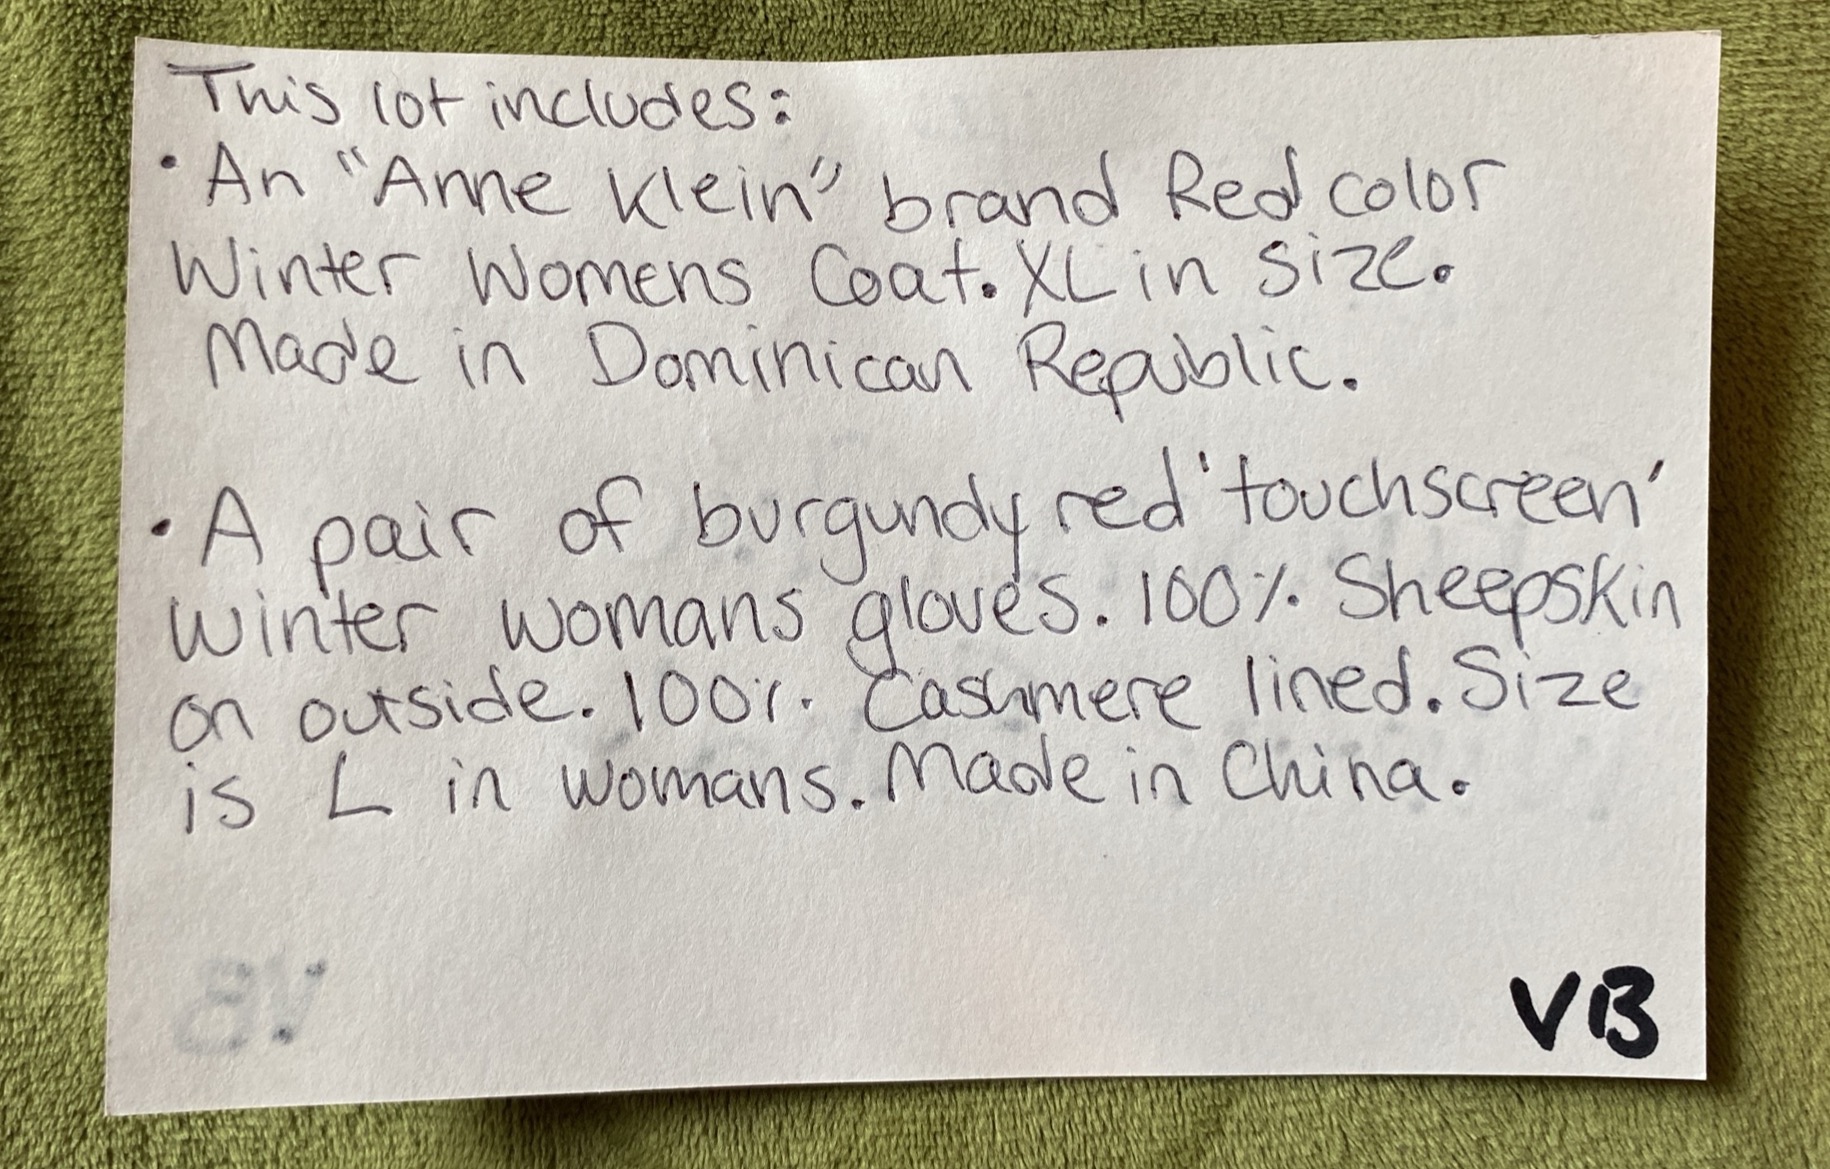 This lot includes:
• An "Anne Klein" brand Red color
Winter Womens Coat. XL in size.
Made in Dominican Republic.
• A pair of burgundy red 'touchscreen'
winter womans gloves. 100% Sheepskin
on outside. 100% Cashmere lined. Size
is L in womans. Made in China.
VB